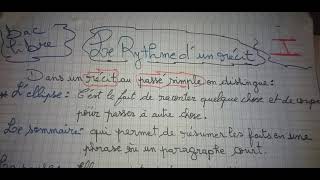 bac
libre
Le Rythme d'un récit
I
Dans un récit au passé simple on distingue:
* L'ellipse: C'est le fait de raconter quelque chose et de
pour passer à autre chose.
Le sommaire: qui permet de résumer les faits en une
phrase ou un paragraphe court.